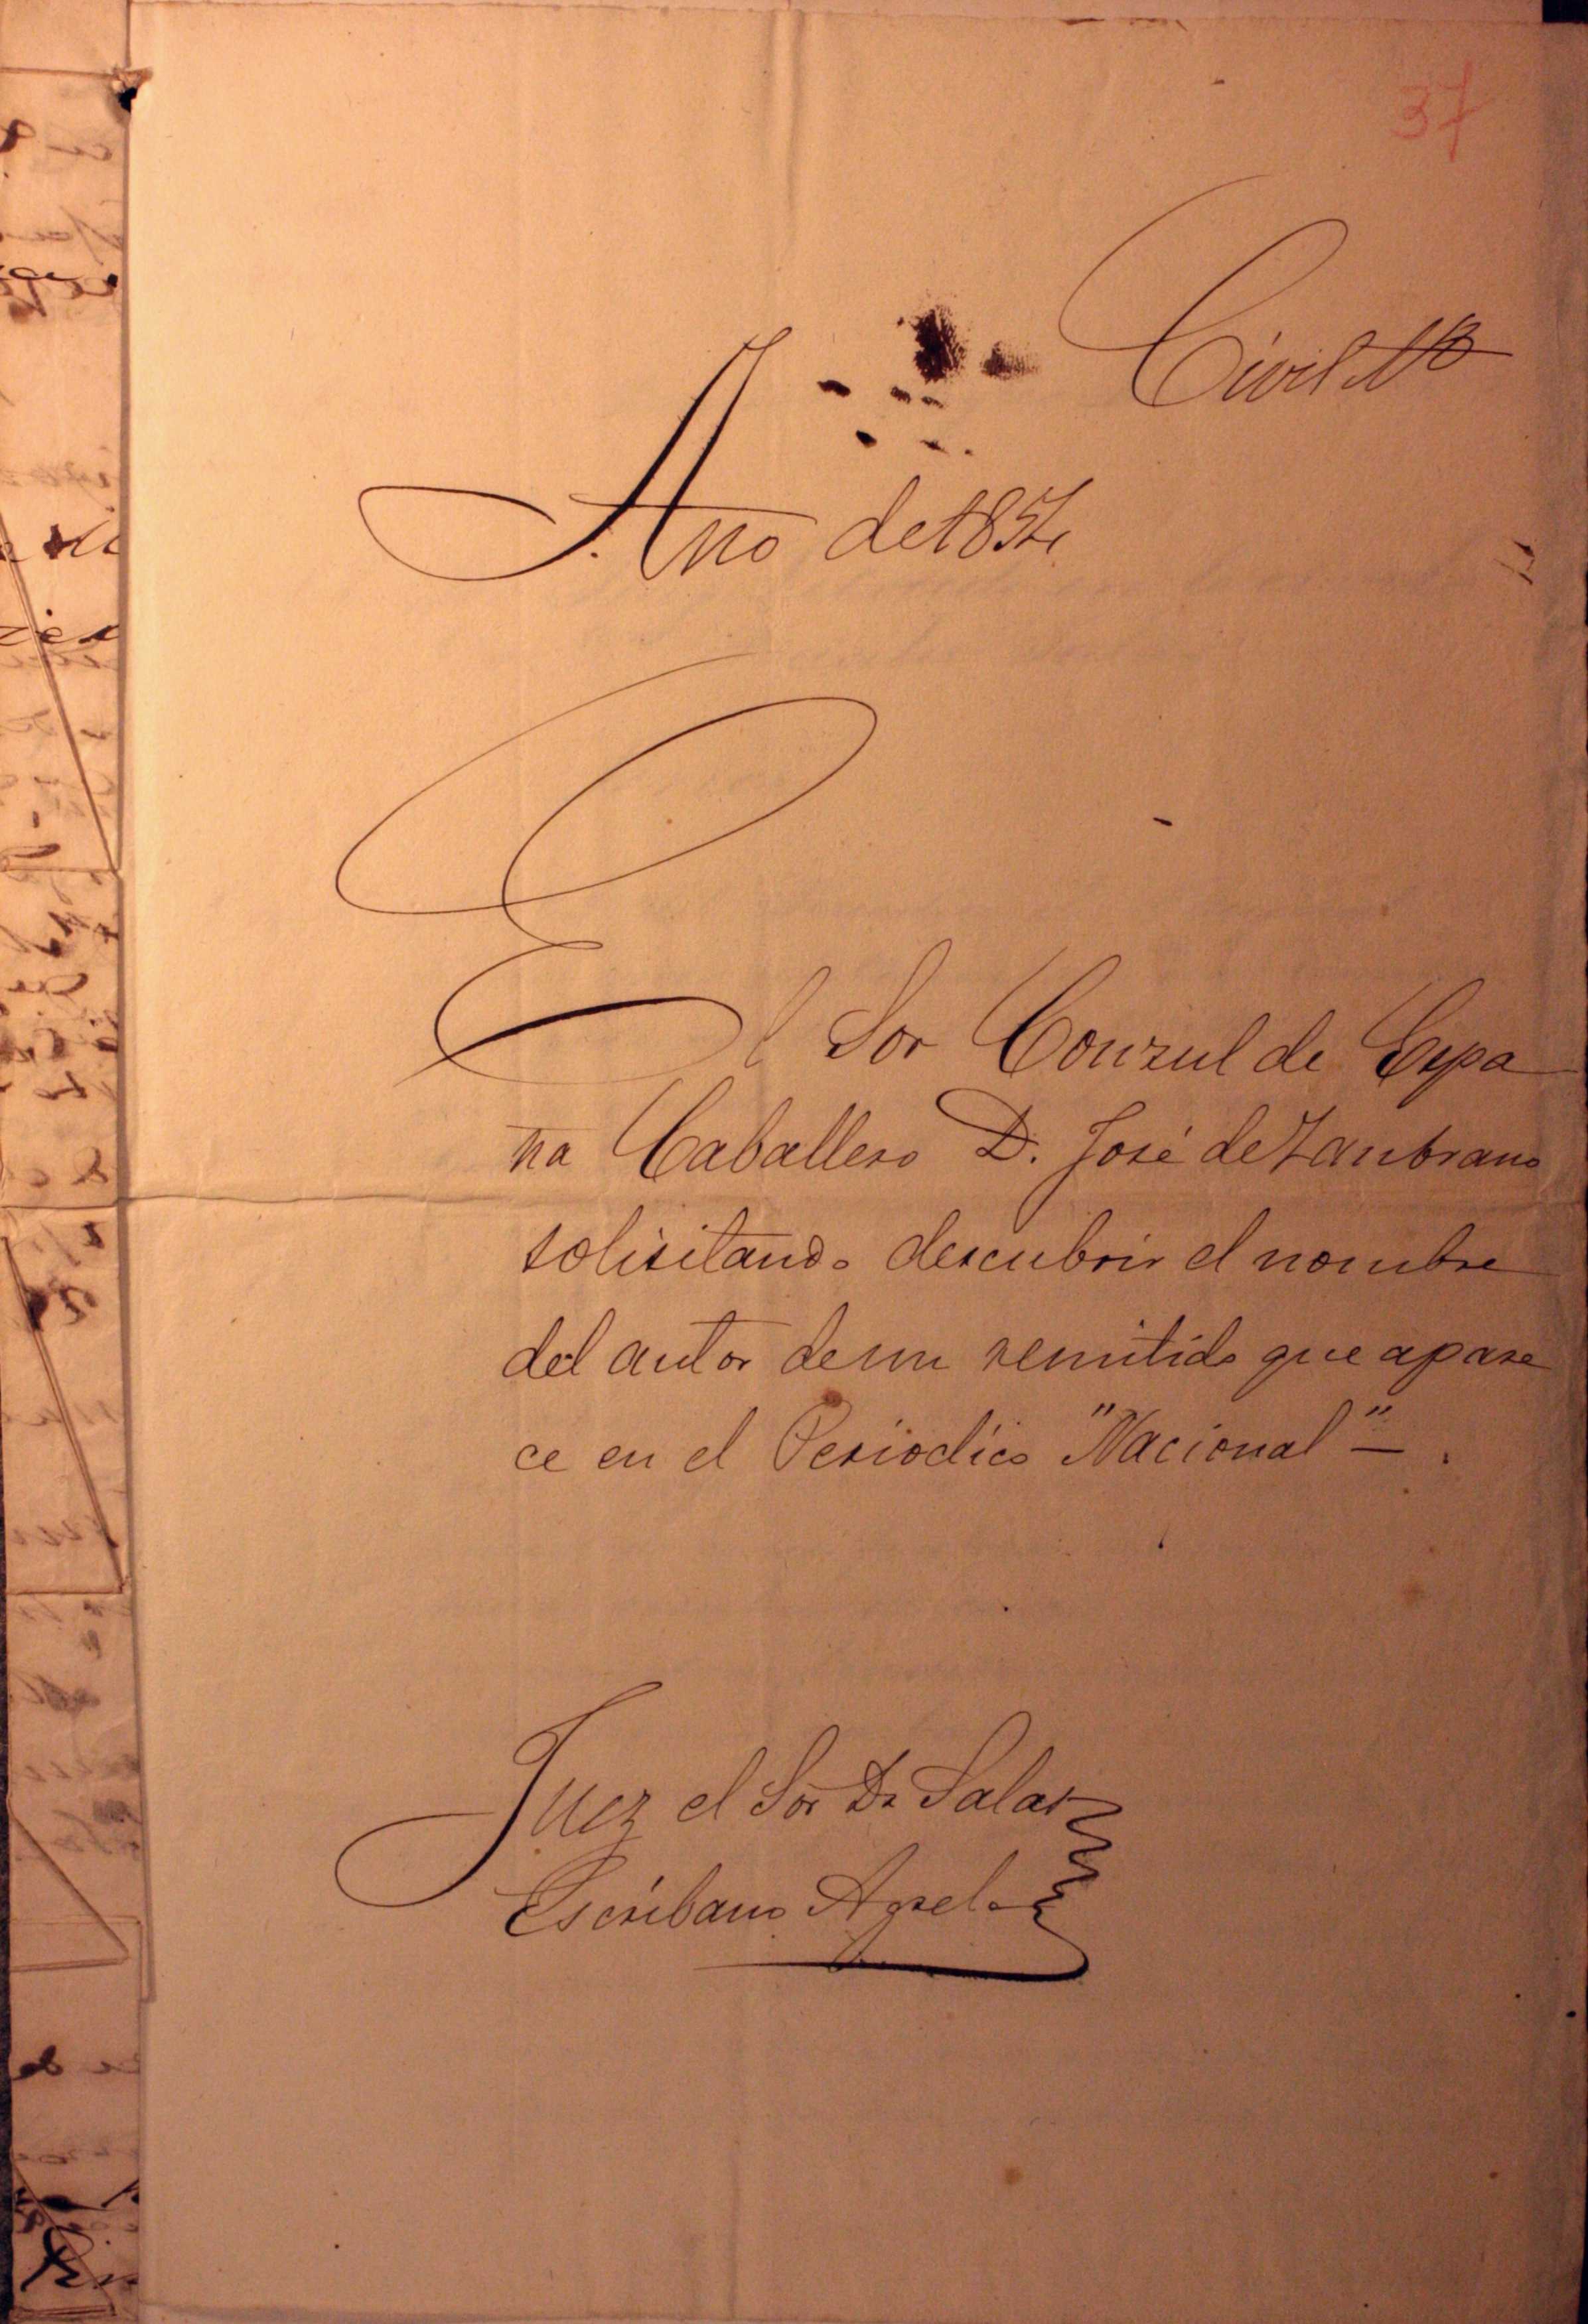 37
Civil
Año de 1854
El Sor Conzul de Espa
ña Caballero D. José de Zanbrano
solisitando descubrir el nombre
del autor de un remitido que apare
ce en el Periodico "Nacional" — .
Juez el Sor Dr Salas
Escribano Agrelo